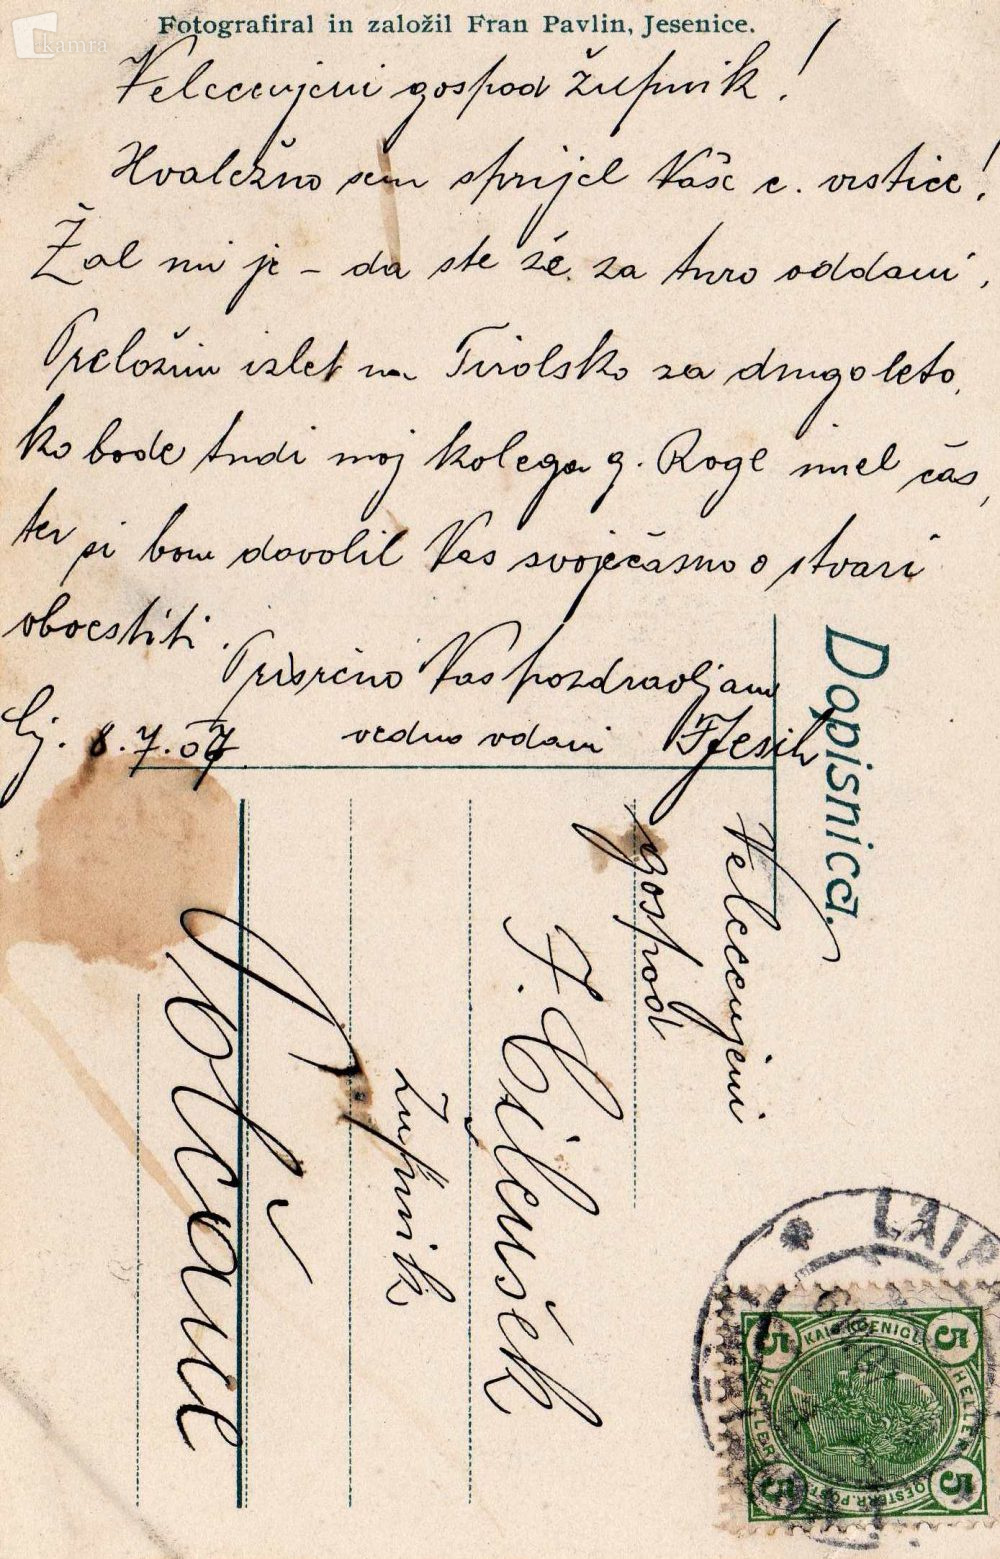 kamra
Fotografiral in založil Fran Pavlin, Jesenice.
Velecenjeni gospod župnik!
Hvaležno sem sprijel Vaše c. vrstice!
Žal mi je – da ste že za turo oddani,
Preložim izlet na Tirolsko za drugo leto,
ko bode tudi moj kolega g. Rogl imel čas,
ter si bom dovolil Vas svoječasno o stvari
obvestiti.
Prisrčno Vas pozdravljam
Lj. 8.7.07 vedno vdani FJesih
Dopisnica.
Velecenjeni
gospod
F. Cilenšek
župnik
Polčane
LAIB
5 KAIS. KOENIGL. 5
HELLER HELLER
5 OESTERR. POST 5